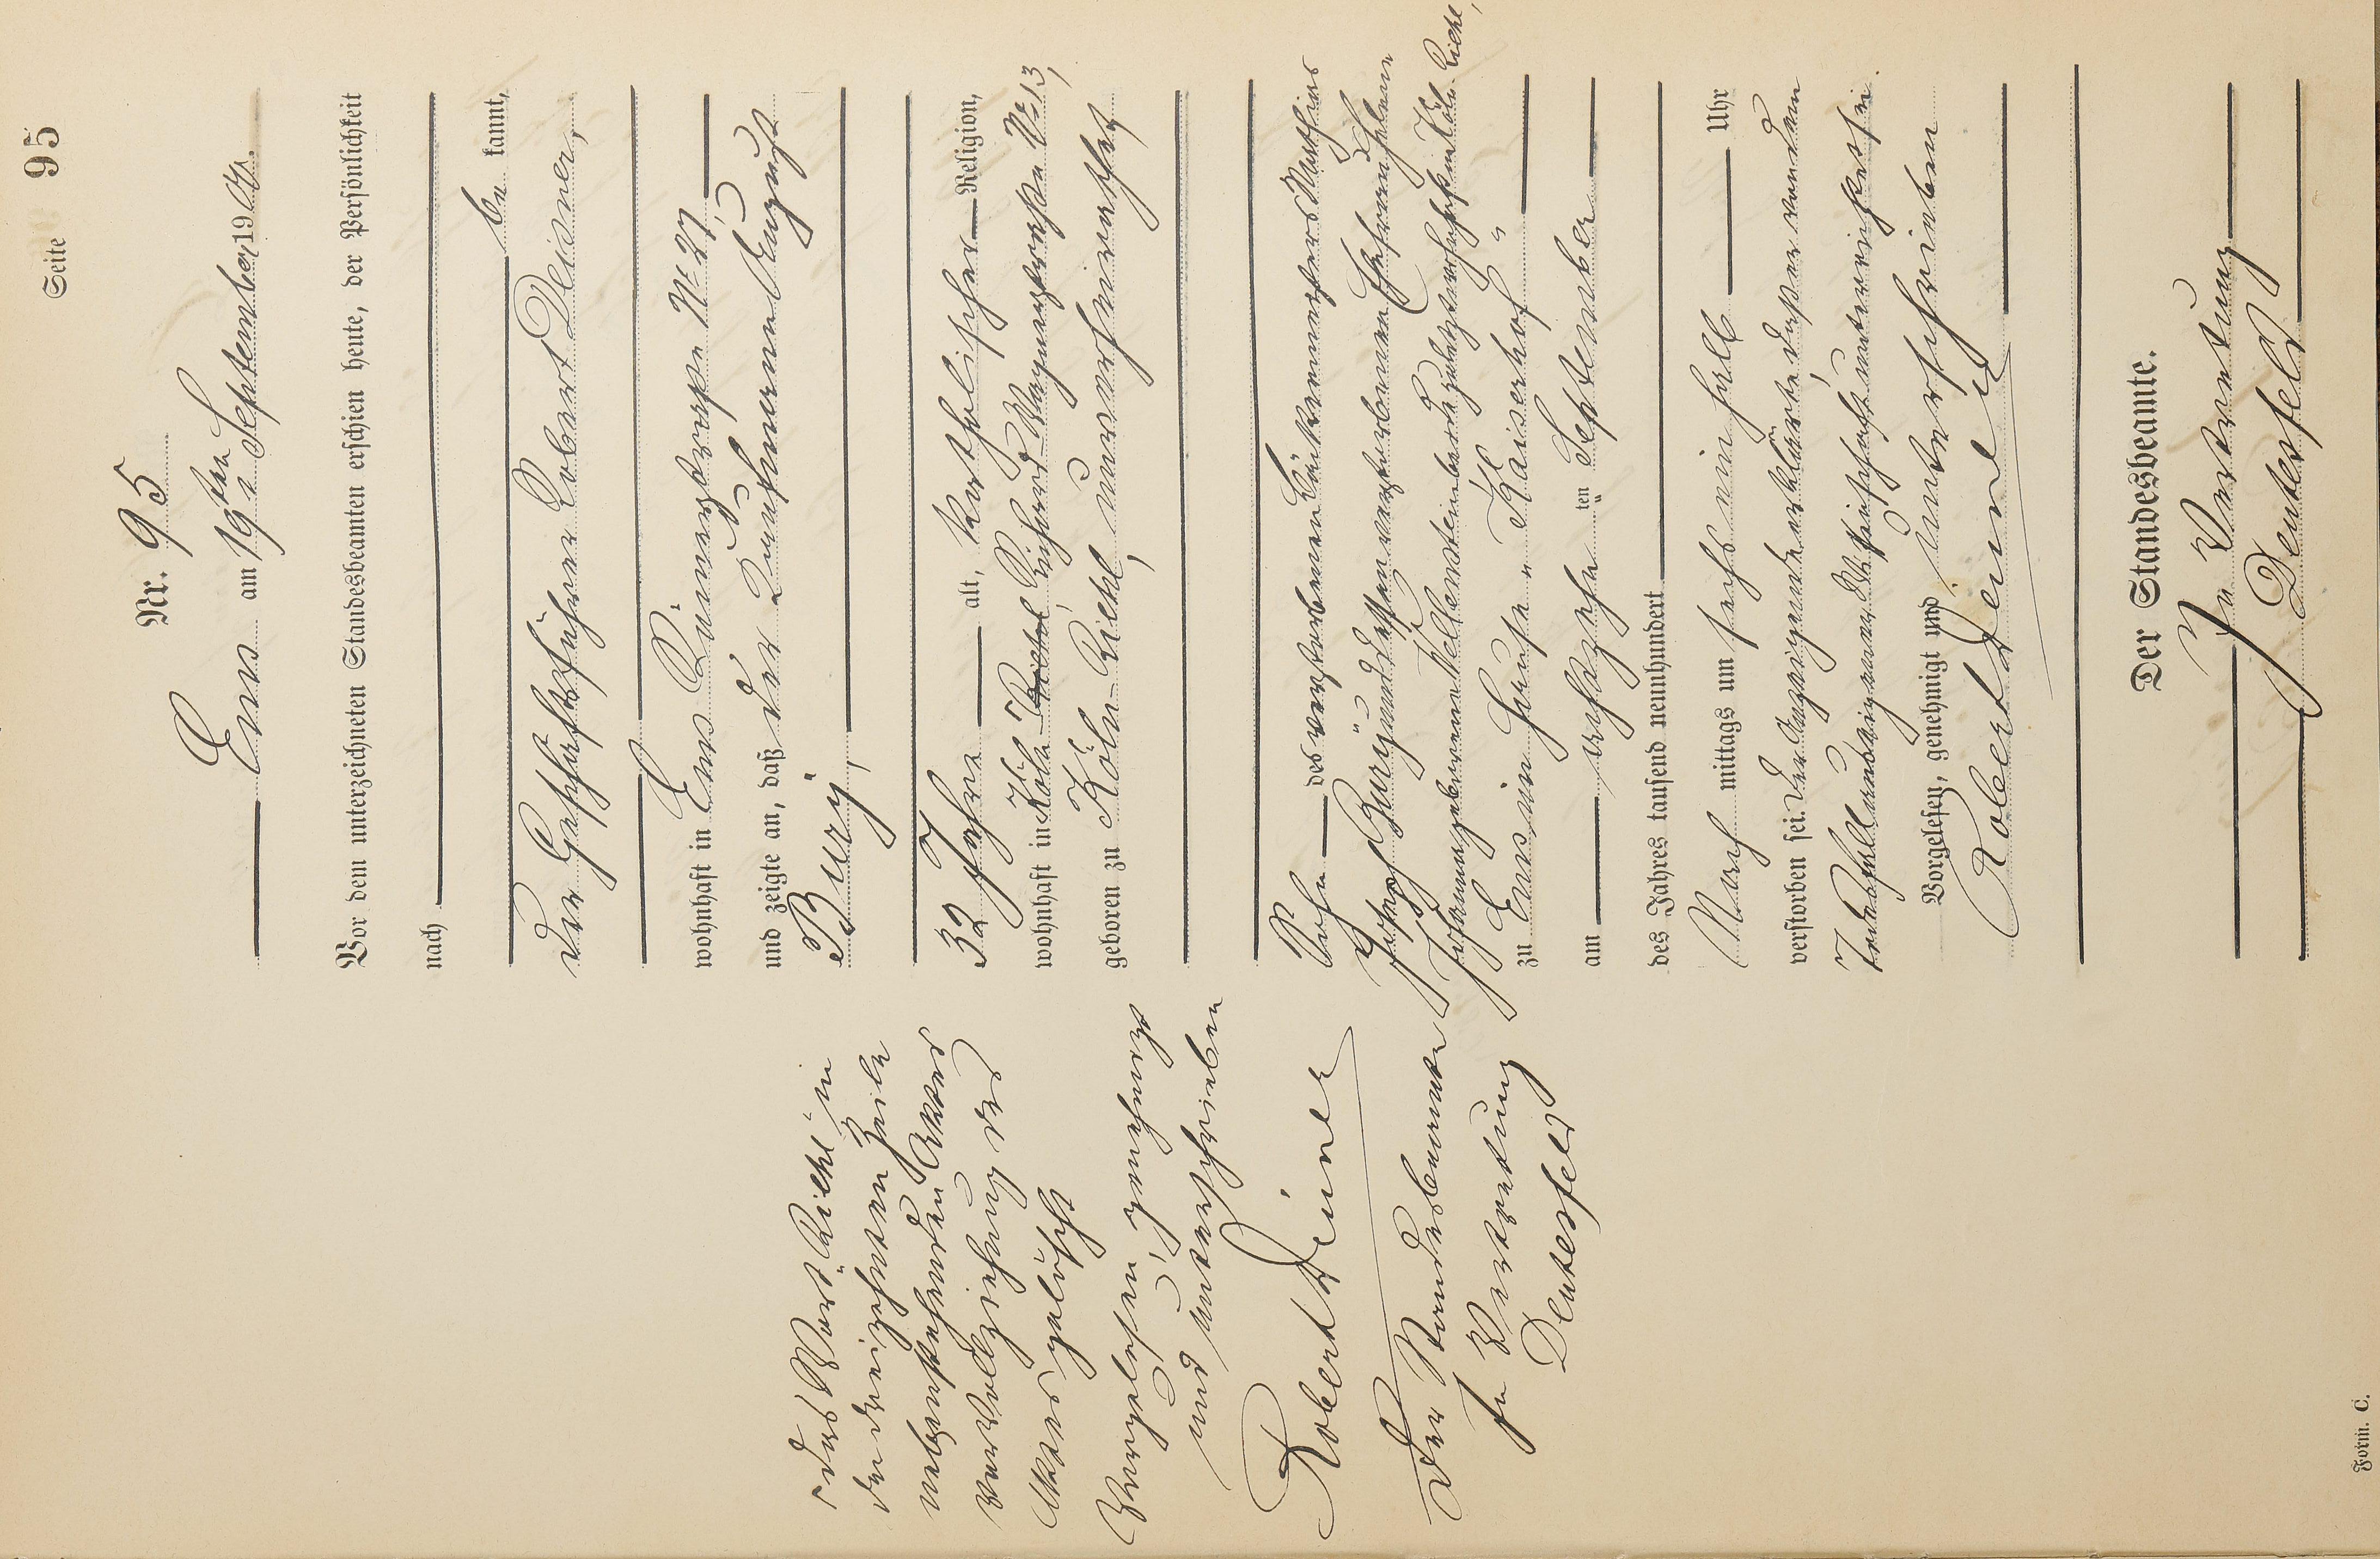 Seite 95
Nr. 95
Ems am 19ten September 1907.
Vor dem unterzeichneten Standesbeamten erschien heute, der Persönlichkeit
nach
be kannt,
der Geschäftsführer Robert Deisner,
wohnhaft in Ems Römerstrasse No 27,
und zeigte an, daß der Kaufmann August
Bury,
32 Jahre alt, katholischer Religion,
wohnhaft in Köln-Riehl, Richard-Wagnerstraße No 13,
geboren zu Köln-Riehl, unverheirathet
Sohn des verstorbenen Bäckermeisters Mathias
Joseph Bury und dessen verstorbenen Ehefrau Helene
Johanna geborene Wellenstein beide zuletzt wohnhaft in Köln-Riehl,
zu Ems im Hause "Kaiserhof"
am achtzehnten September
des Jahres tausend neunhundert
Nach mittags um sechs ein halb Uhr
verstorben sei. Der Anzeigende erklärte, daß er von dem
Todesfall aus eigener Wissenschaft unterrichtet sei.
Vorgelesen, genehmigt und unterschrieben
Robert Deisner
Der Standesbeamte.
In Vertretung
Deutesfeld
"das Wort "Riehl" in
der dreizehnten Zeile
nebenstehenden Aktes
vor Vollziehung des
Aktes gelöscht
Vorgelesen, genehmigt
und unterschrieben
Robert Deisner
Der Standesbeamte
In Vertretung
Deutesfeld
Form. C.